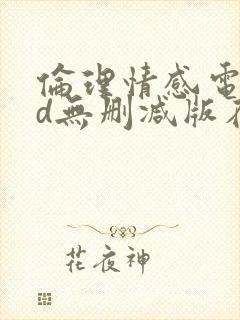 倫理情感電
d無删減版
花夜神